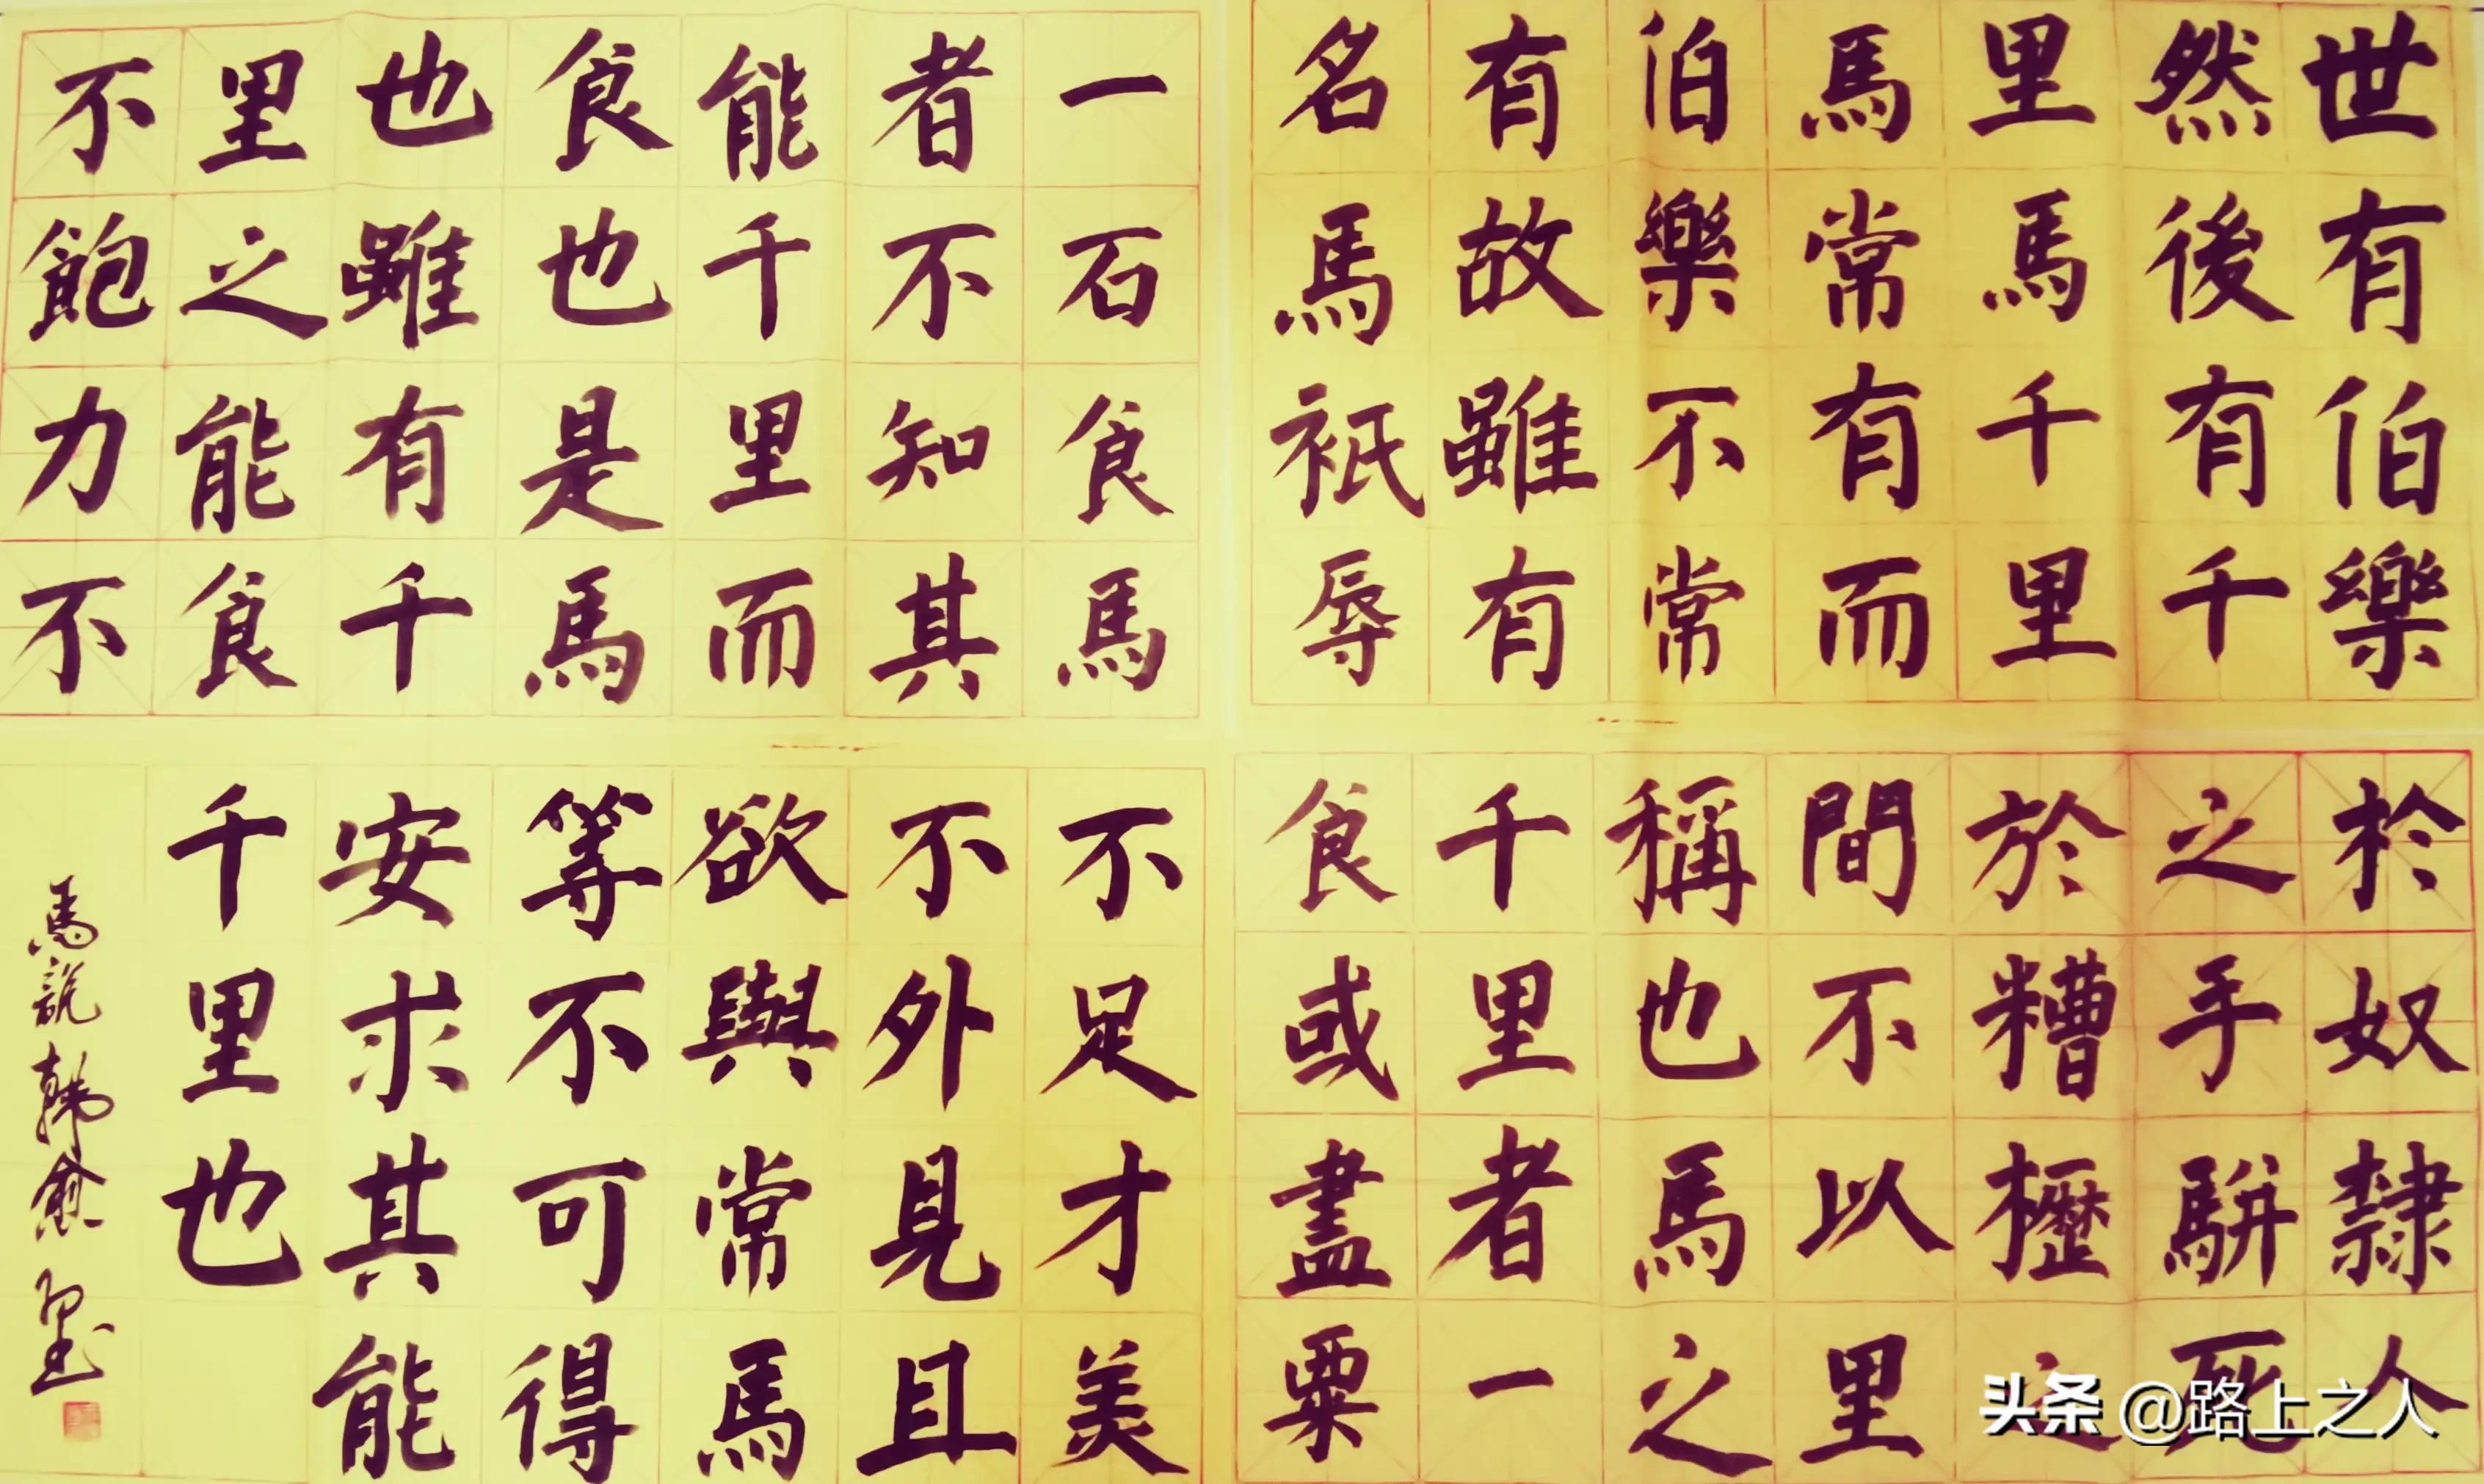 世有伯樂
然後有千
里馬千里
馬常有而
伯樂不常
有故雖有
名馬衹辱
於奴隸人
之手駢死
於糟櫪之
間不以里
稱也馬之
千里者一
食或盡粟
一石食馬
者不知其
能千里而
食也是馬
也雖有千
里之能食
不飽力不
不足才美
不外見且
欲與常馬
等不可得
安求其能
千里也
馬說韓愈
头条 @路上之人